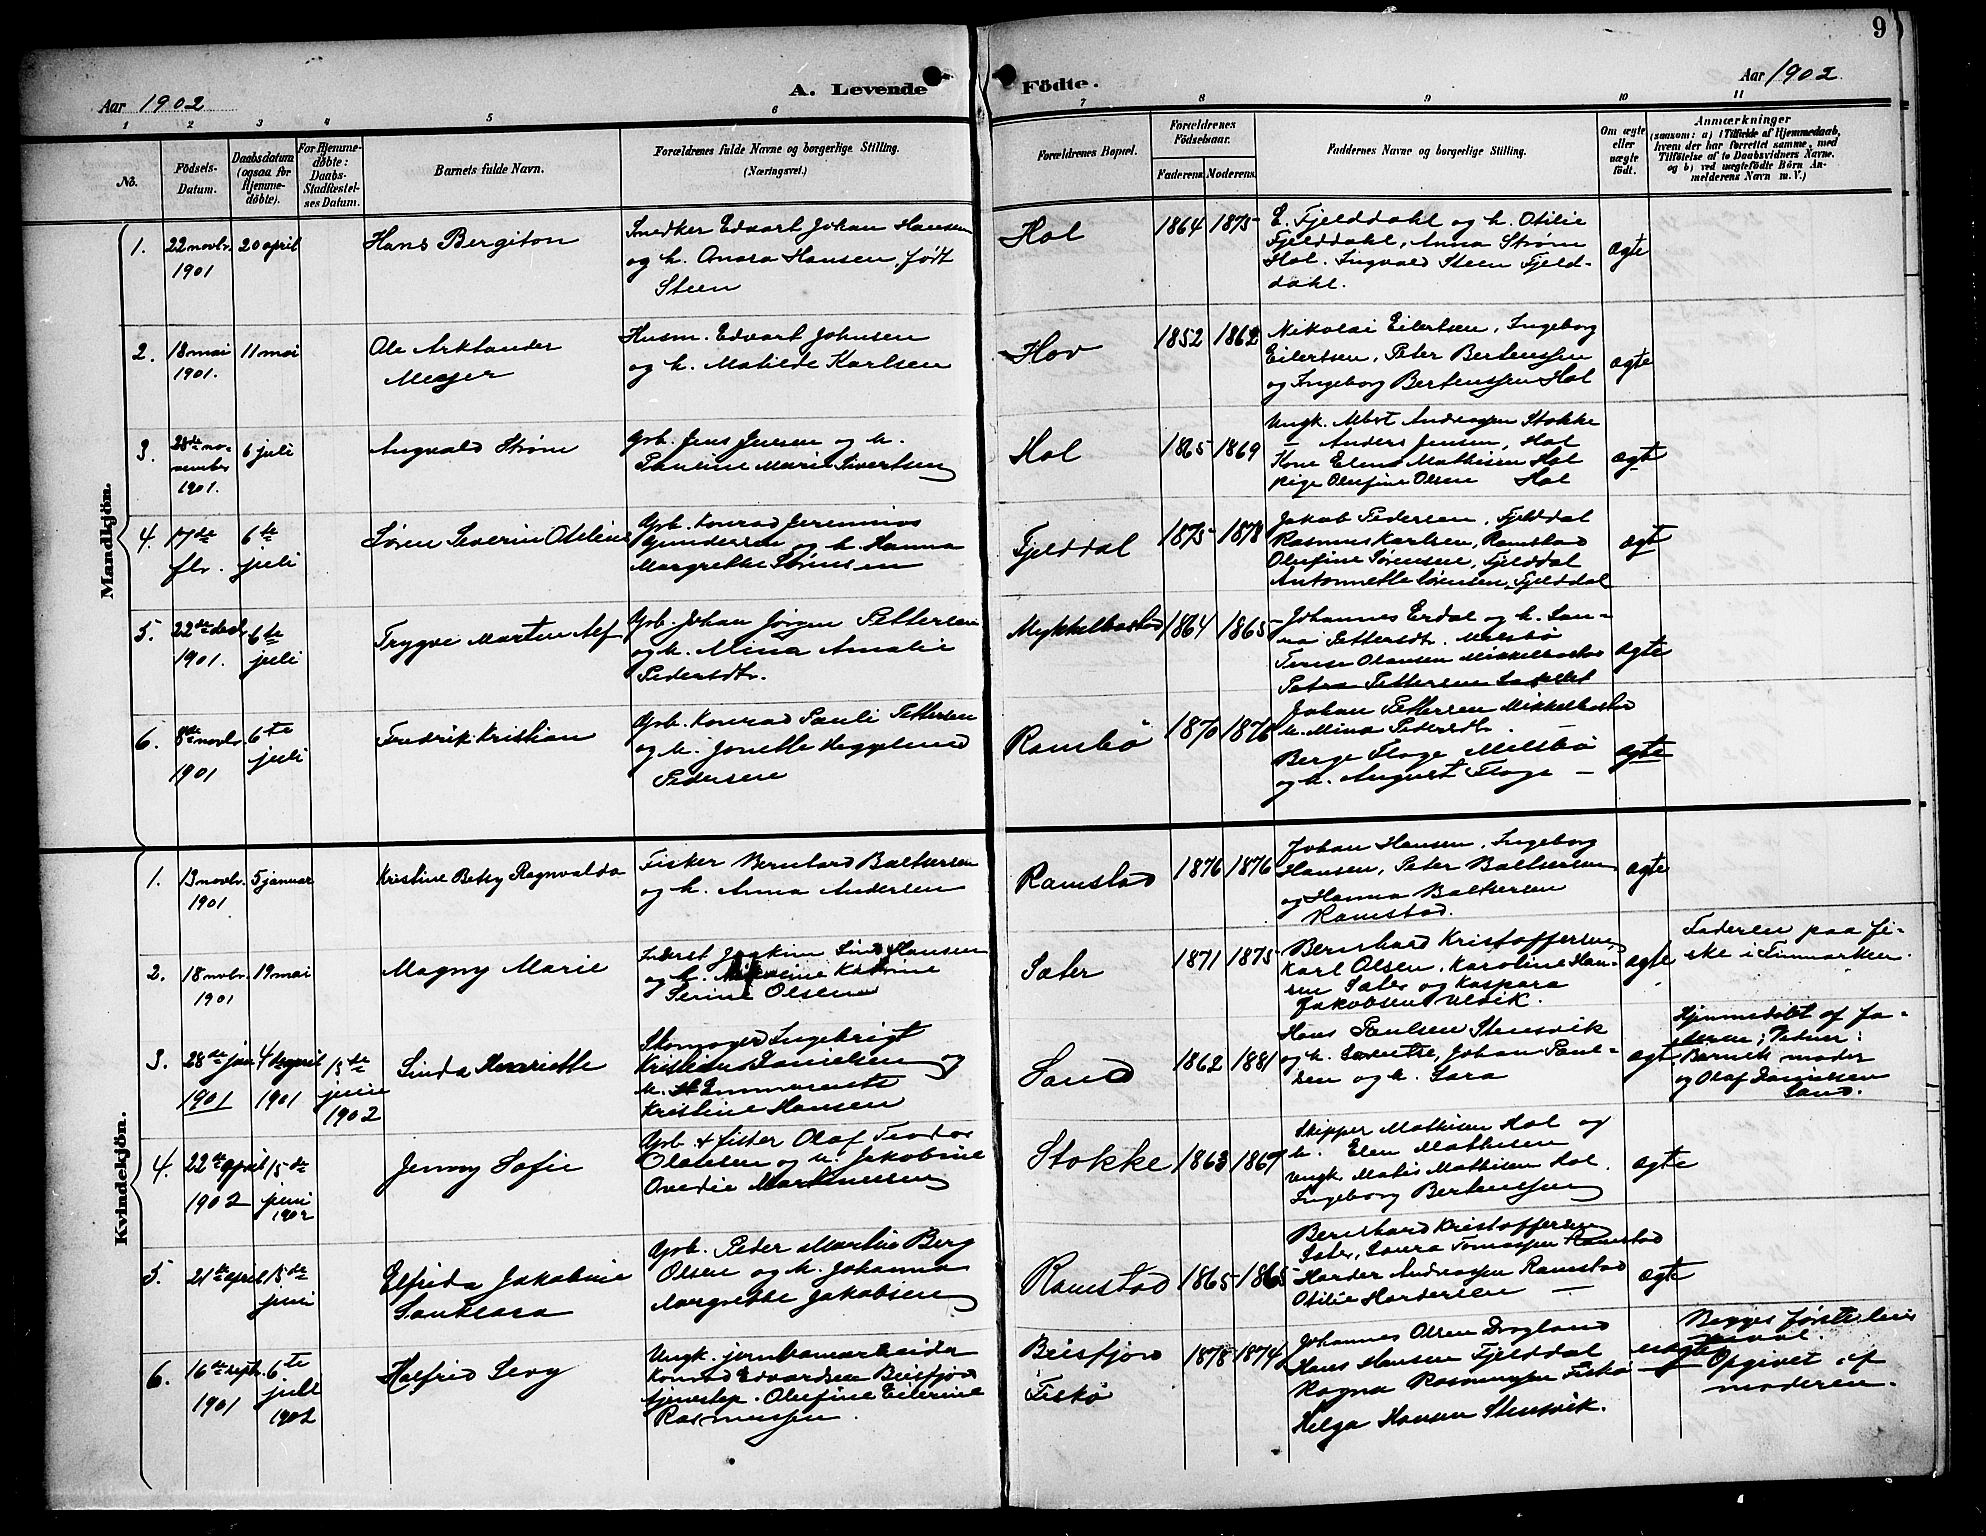 9
Aar 1902
A. Levende Födte.
Aar 1902
1 2 3 4 5 6 7 8 9 10 11
No.
Födsels-
Datum.
Daabsdatum
(ogsaa for
Hjemme-
döbte).
For Hjemme-
döbte:
Daabs-
Stadfæstel-
ses Datum.
Barnets fulde Navn.
Forældrenes fulde Navne og borgerlige Stilling.
(Næringsvei.)
Forældrenes Bopæl.
Forældrenes
Födselsaar.
Faderens Moderens
Faddernes Navne og borgerlige Stilling.
Om ægte
eller
uægte
födt.
Anmærkninger
(saasom: a) i Tilfælde af Hjemmedaab,
hvem der har forrettet samme, med
Tilföielse af to Daabsvidners Navne,
og b) ved uægtefödte Börn An-
melderens Navn m. V.)
Mandkjön.
1.
22 novbr.
1901
20 april
Hans Bergiton
Snedker Edvart Johan Hansen
og h. Anara Hansen, født
Steen
Hol
1864 1875
E. Fjelddahl og h. Otilie
Fjelddahl, Anna Strøm
Hol. Ingvald Steen Fjeld-
dahl.
ægte
2.
18 mai
1901.
11 mai
Ole Arktander
Mejer
Husm. Edvart Johnsen
og h. Matilde Karlsen
Hov
1852 1862
Nikolai Eilertsen, Ingeborg
Eilertsen, Peter Bertenssen
og Ingeborg Bertenssen Hol
ægte
3.
28de no-
vember
1901.
6 juli
Angvald Strøm
Gbr. Jens Jensen og h.
Pauline Marie Sivertsen
Hol
1865 1869
Ungk. Albert Andreassen Stokke
— Anders Jensen, Hol
Kone Elena Mathisen Hol
Pige Olufine Olsen Hol
ægte
4.
17de
fbr.
6te
juli
Søren Severin Otelius
Gbr. Konrad Jeremias
Gundersen og h. Hanna
Margrethe Sørensen
Fjelddal
1875 1878
Jakob Pedersen, Fjelddal
Rasmus Karlsen, Ramstad
Olufine Sørensen, Fjelddal
Antonnette Sørensen, Fjelddal
ægte
5.
22de decbr
1901.
6te
juli
Trygve Marten Alf
Gbr. Johan Jørgen Pettersen
og h. Mina Amalie
Pedersdtr.
Mykkelbostad
1864 1865
Johannes Erdal og h. San-
na Pettersdtr. Melsbø
Terese Olausen Mikkelbostad
Petra Pettersen
ægte
6.
8de novbr.
1901
6te
juli
Fredrik Kristian
Gbr. Konrad Pauli Pettersen
og h. Jonette
Pedersen
Ramsbø
1870 1876
Johan Pettersen Mikkelbostad
h. Mina Pedersdtr.
Berge Floge Melsbø
og h. August Floge —
ægte
Kvindekjön.
1.
13 novbr.
1901
5 januar
Kristine Betsy Ragnvalda
Fisker Bernhard Baltsersen
og h. Anna Andersen
Ramstad
1876 1876
Johan Hansen, Ingeborg
Hansen, Peter Baltsersen
og Hanna Baltsersen
Ramstad.
ægte
2.
18 novbr.
1901
19 mai
Magny Marie
Inderst Joakim Hansen
og h. Kristine
Serine Olsen
Sater
1871 1875
Bernhard Kristoffersen
Karl Olsen, Karoline Han-
sen Sater og Kaspara
Jakobsen Ulvik.
ægte
Faderen paa fi-
ske i Finmarken.
3.
28de jan
1901
4de april
1901
15de
juni
1902
Linda Henriette
Skomager Ingebrigt
Kristian Danielsen og
h. Emmerentse
Kristine Hansen
Sand
1862 1881
Hans Paulsen Stensvik
og h. Laurentse, Johan Paul-
sen og h. Sara
ægte
Hjemmedøbt af fa-
deren; Vidner:
Barnets moder
og Olaf Danielsen
Sand.
4.
22de april
1902
15de
juni
1902
Jenny Sofie
Gbr. + fisker Olaf Teodor
Olaussen og h. Jakobine
Ovedie Martinussen
Stokke
1863 1867
Skipper Mathisen Hol og
h. Elen Mathisen
Ungk. Matis Mathisen Hol.
Ingeborg Bertenssen
ægte
5.
21de april
15de
juni
Elfrida Jakobine
Sanklara
Gbr. Peder Martin Berg
Olsen og h. Johanna
Margrethe Jakobsen
Ramstad
1865 1865
Bernhard Kristoffersen
Sater, Laura Tomassen Ramstad
Harder Andreassen Ramstad
Otilie Hardersen —
ægte
6.
16de septr.
1901
6te
juli
1902
Halfrid Levy
Ungk. jernbanearbeider
Konrad Edvardsen Beisfjord
tjenestep. Olufine Eilerine
Rasmussen.
Beisfjord
Fiskø
1878 1874
Johannes Olsen Drogland
Hans Hansen Fjelddal
Ragna Rasmussen Fiskø
Helga Hansen Stensvik.
uægte
Begges første leier-
maal.
Opgivet af
moderen.